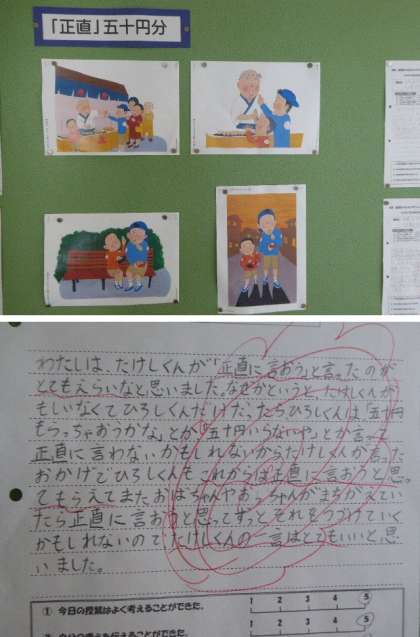 「正直」五十円分
わたしは、たけしくんが「正直に言おう」と言ったのが
とてもえらいなと思いました。なぜかというと、たけしくんが
もしいなくてひろしくんだけだったらひろしくんは「五十円
もらっちゃおうかな。」とか「五十円いらないや」とか言って
正直に言わないかもしれないからたけしくんが言った
おかげでひろしくんもこれからは正直に言おうと思っ
てもらえてまたおばちゃんやおっちゃんがまちがえてい
たら正直に言おうと思ってずっとそれをつづけていく
かもしれないのでたけしくんの一言はとてもいいと思
いました。
① 今日の授業はよく考えることができた。
1 2 3 4 5